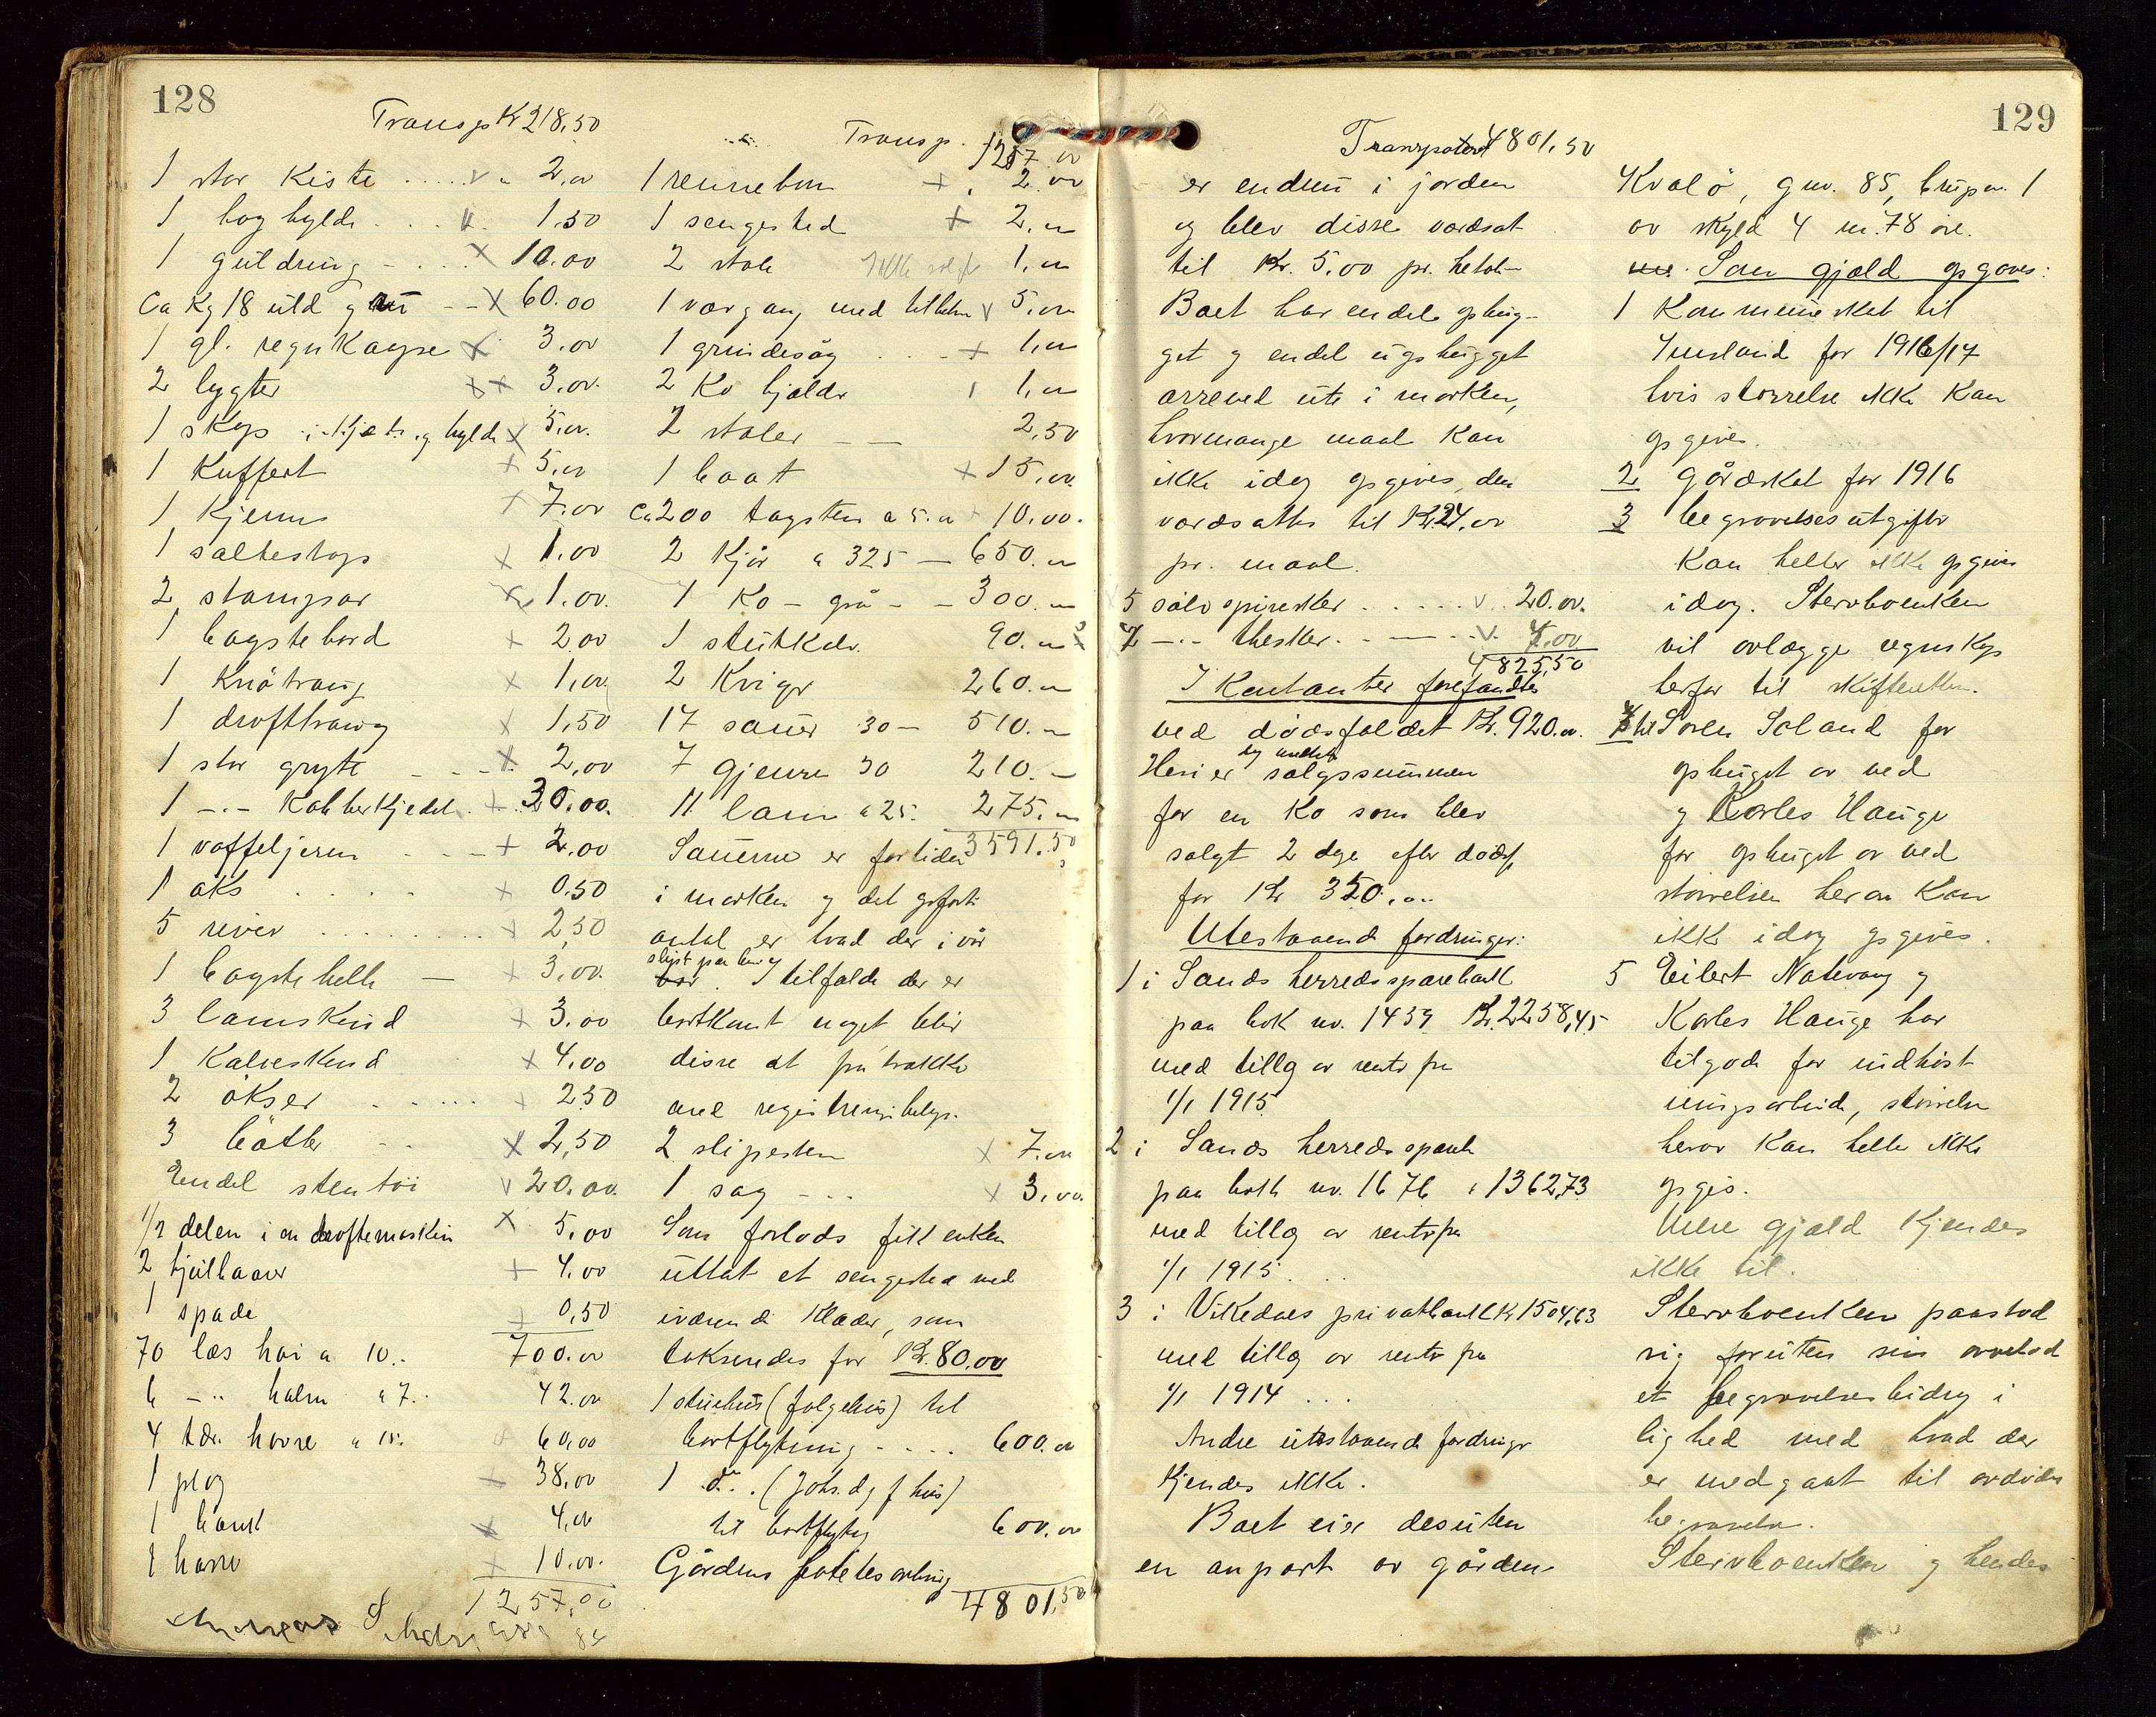 128
Transp Kr 218,50
1 stor Kiste 2,00
1 boghylde 1.50
1 guldring 10.00
Ca Kg 18 uld 60.00
1 gl. regnkappe 3.00
2 lygter 3.00
1 skap i Kjøk. og hylde 5.00
1 Kuffert 5.00
1 Kjerne 7.00
1 saltestop 1.00
2 stampar 1.00
1 bagstebord 2.00
1 Knåtraug 1.00
1 drofttraug 1,50
1 stor gryte 2,00
1 -"- Kobberkjedel 30.00
1 vaffeljern 2,00
1 øks 0,50
5 river 2,50
1 bagstehelle 3,00
3 lamskind 3.00
1 Kalveskind 4,00
2 økser 2,50
3 bøtter 2,50
Endel stentøi 20.00
1/2 delen i en drøftemaskin 5,00
2 hjulbaarer 4,00
1 spade 0,50
70 læs høi a 10.. 700.00
6 -"- halm a 7.. 42.00
4 tdr. havre a 15. 60,00
1 plog 38,00
1 4,00
1 harv 10.00
1257,00
Transp. 1257.00
1 rennebom 2.00
1 sengested 2,00
2 stole Ikke solgt 1,00
1 vævgang med tilbehør 5,00
1 grindesåg 1,00
2 Kobjælder 1,00
2 stoler 2,50
1 baat 15,00
Ca 200 tagsten a 5.00 10.00
2 Kjør a 325 — 650.00
1 Ko - grå - 300.00
1 stutkalv 90.00
2 Kviger 260.00
17 sauer 30 — 510.00
7 gjenre 30 210.—
11 lam a 25. 275,00
3591,50
Sauerne er fortiden
i marken og det opførte
antal er hvad der i vår
slept paa bei
var. I tilfælde der er
bortkomt noget blir
disse at fratrække
ved registreringsbeløp.
2 slipesten 7.00
1 sag 3.00
Som forlods fik enken
uttat et sengested med
iværende Klæder, som
takseredes for Kr. 80,00
1 stuehus (folgehus) til
bortflytning 600.00
1 do. (Johs. d.y.s hus)
til bortflytng 600.00
Gårdens potetesavling
4801,50
129
Transportert 4801,50
er endnu i jorden
og blev disse værdsat
til Kr. 5,00 pr. hektol—
Boet har endel ophug-
get og endel uophugget
arreved ute i marken,
hvormange maal Kan
ikke idag opgives, den
værdsattes til Kr. 24,00
pr. maal.
5 sølvspiseskeer 20.00
-"- theskeer
4825,50
I Kontanter forefandtes
ved dødsfaldet Kr. 920.00
Heri er salgssummen
for en Ko som blev
solgt 2 dage efter dødsf.
for Kr 350.00
Utestaaende fordringer:
1 i Sands herreds sparebank
paa bok nr. 1439 Kr. 2258,45
med tillæg av rente fra
1/1 1915
2 i Sands herreds spareb
paa bok nr. 1676 " 1362,73
med tillæg av rente fra
1/1 1915
3 i Vikedals privatbank Kr 1504,63
med tillæg av rente fra
1/1 1914
Andre utestaaende fordringer
Kjendes ikke.
Boet eier desuten
en anpart av gården
Kvalø, gnr. 85, bruksnr. 1
av skyld 4 m. 78 øre.
Som gjæld opgaves:
1 Kommuneskat til
Imsland for 1916/17
hvis størrelse ikke Kan
opgives.
2 Gårdskat for 1916
3 begravelsesutgifter
Kan heller ikke opgives
idag. Stervboenken
vil avlægge regnskap
herfor til skifteretten.
4 til Søren Søland for
ophuget av ved
og Karles Hauge
for ophuget av ved
størrelsen herav Kan
ikke idag opgives.
5 Eilert Natevong og
Karles Hauge har
tilgode for indhøst
ningsarbeide, størrelsen
herav Kan heller ikke
opgis.
Mere gjæld Kjendes
ikke til.
Stervboenken paastod
sig foruten sin arvelod
et begravelsesbidrag i
lighed med hvad der
er medgaat til avdødes
begravelse.
Stervboenken og hendes